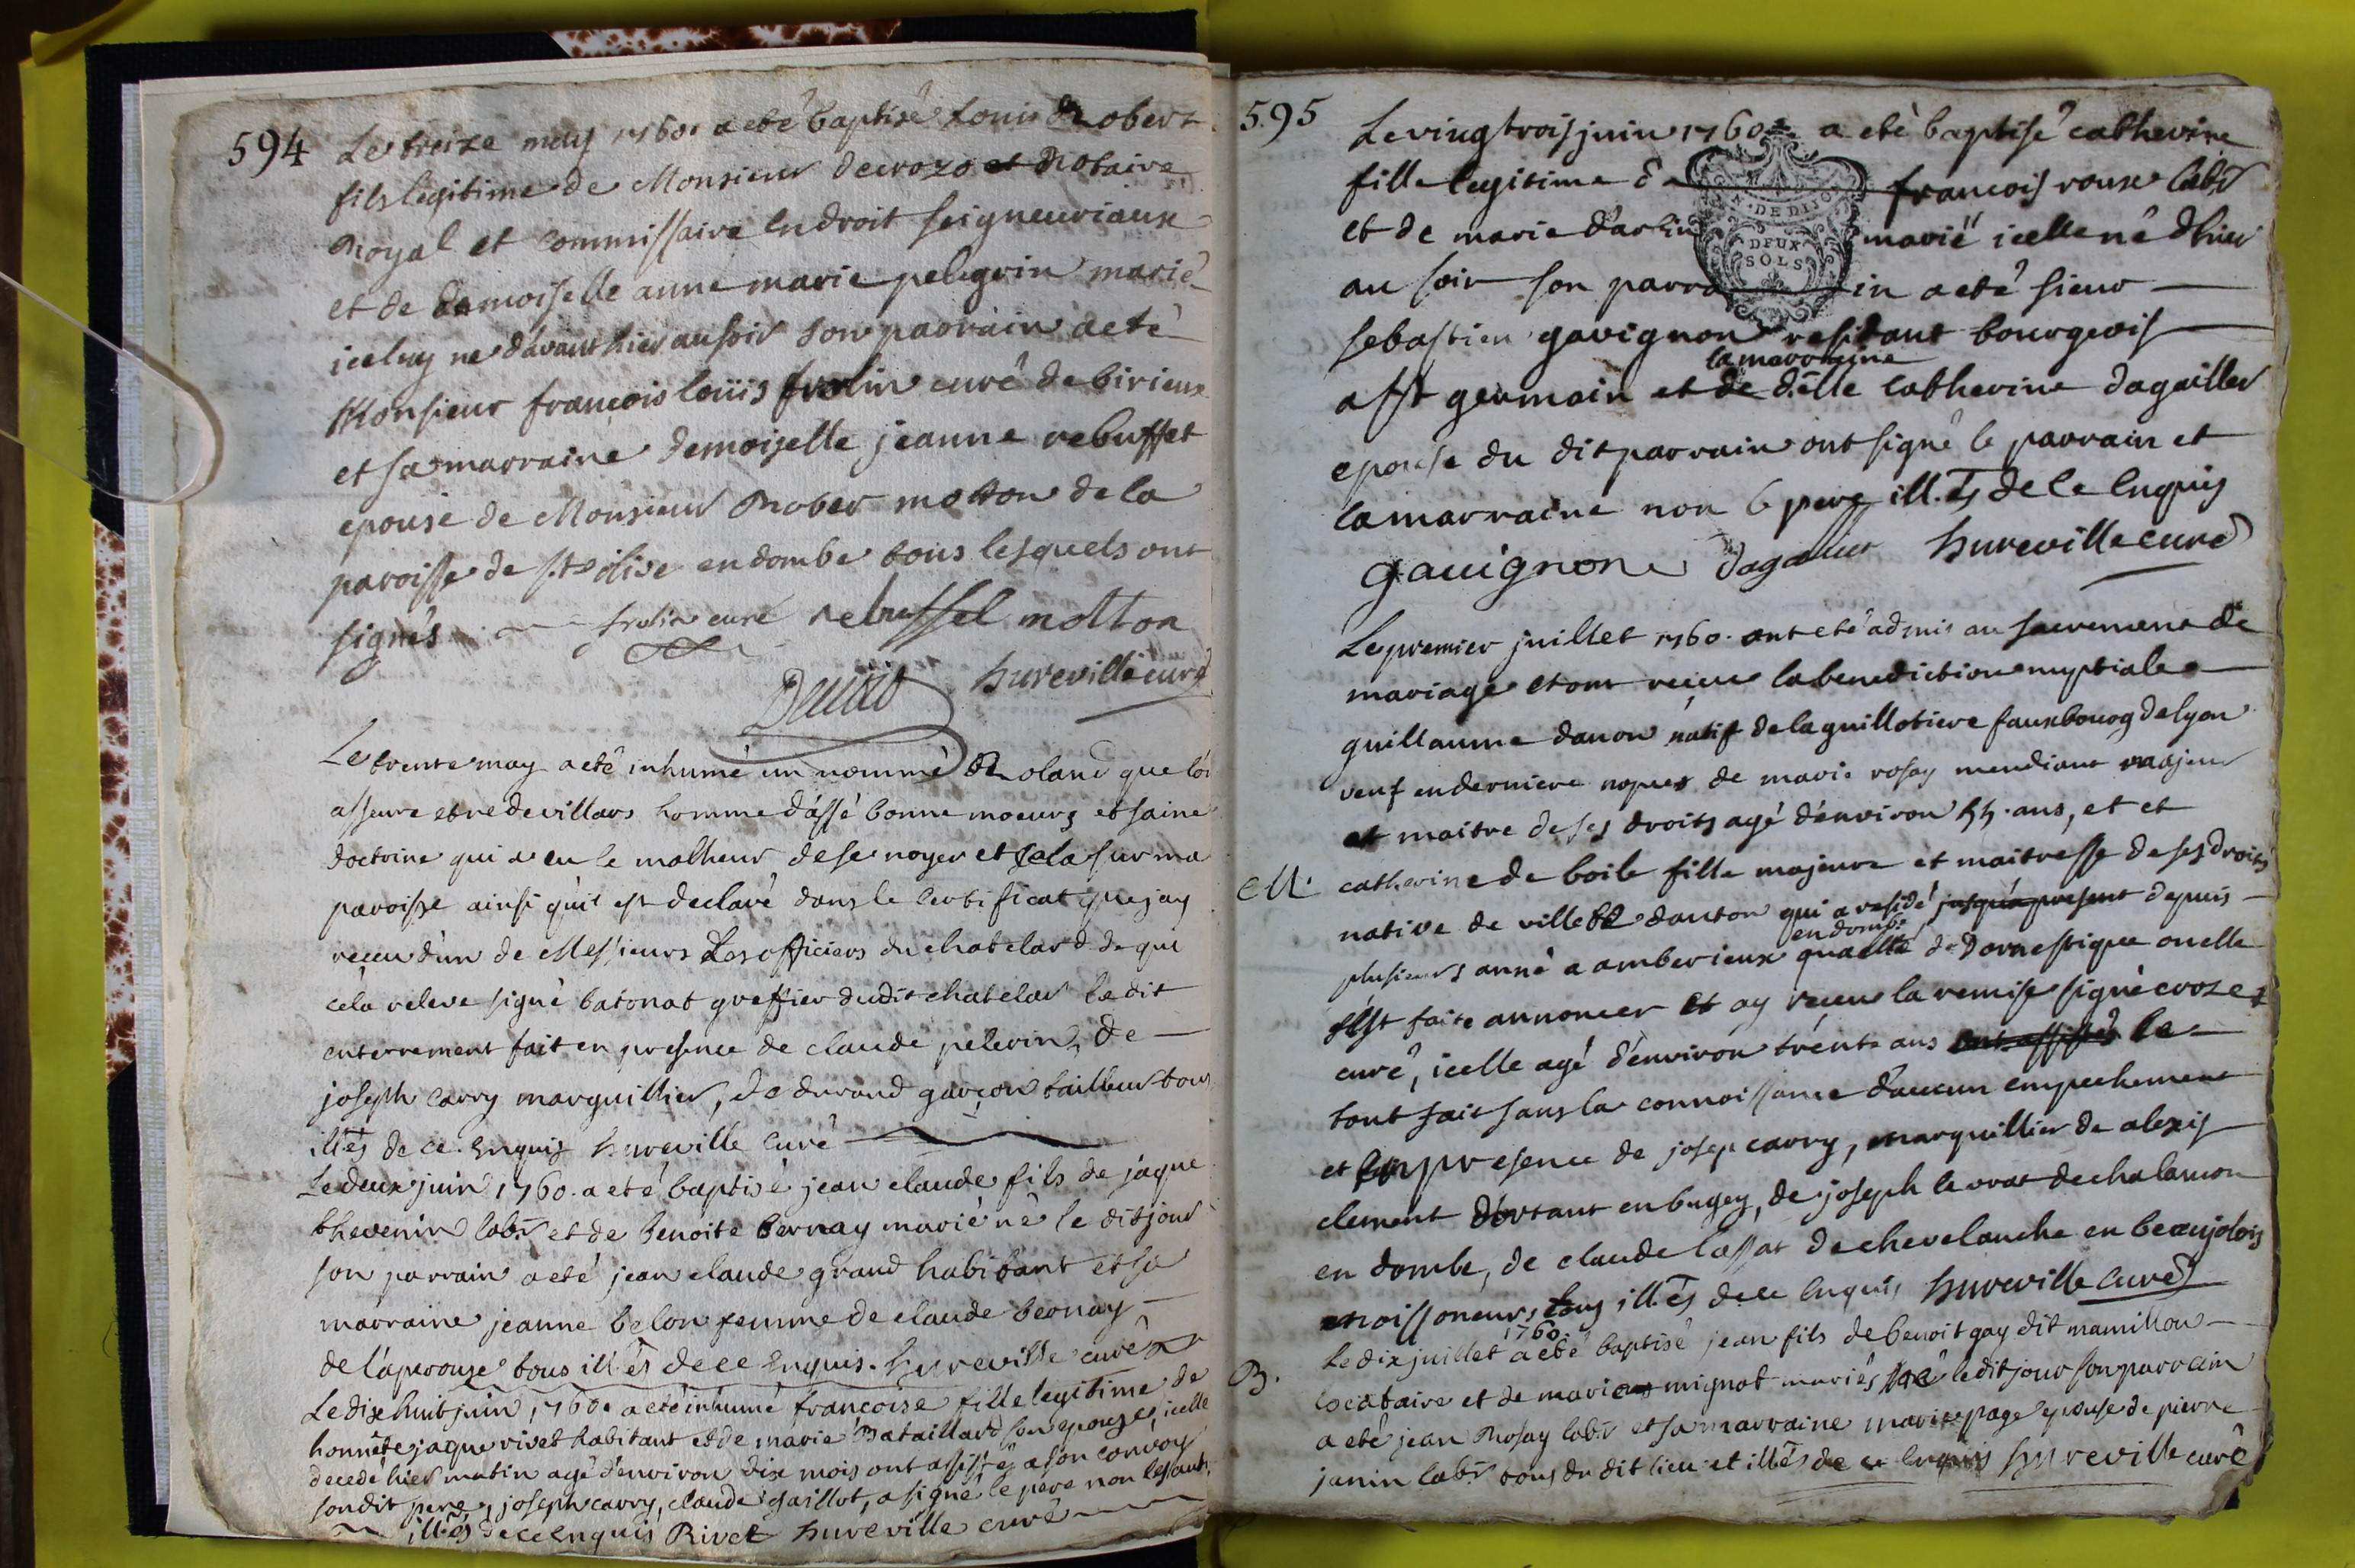 594
Le treize may 1760. a eté baptisé Louis Robert
fils legitime de Monsieur decrozo et Notaire
Royal et commissaire en droit seigneuriaux
et de demoiselle anne marie pelegrin marié
iceluy né davant hier au soir son parrain a eté
Monsieur francois loüis frolin curé de birieux
et sa marraine demoiselle jeanne rebuffet
epouse de Monsieur Rober molton de la
paroisse de ste olive en dombe tous lesquels ont
signés frolin curé rebuffel molton
hureville curé
Le trente may a eté inhumé un nommé Roland que l'on
asseure etre de villars homme d'assé bonne moeurs et saine
doctrine qui a eu le malheur de se noyer et cela sur ma
paroisse ainsi qu'il est declaré dans le certificat que jay
receu d'un de Messieurs Les officiers du chatelard de qui
cela releve signé batonat greffier dudit chatelar le dit
enterrement fait en presence de claude pelerin, de
joseph carry marguillier, de durand garçon tailleur tous
ill.és de ce enquis hureville curé
Le deux juin 1760. a eté baptisé jean claude fils de jaque
thevenin lab.r et de benoite bernay marié né le dit jour
son parrain a eté jean claude grand habitant et sa
marraine jeanne belon femme de claude bernay
de laperouse tous ill.és de ce enquis. hureville curé
Le dix huit juin 1760. a eté inhumé francoise fille legitime de
honnête jaque rivet habitant et de marie Bataillard son epouze, icelle
decedé hier matin agé d'environ dix mois ont assistés a son convoy
son dit pere, joseph carry, claude gaillot, a signé le pere non les aut.
ill.és de ce enquis Rivet hureville curé
595
Le vingt trois juin 1760 a eté baptisé catherine
fille legitime d francois roux lab.r
et de marie darlin marié icelle né d'hier
DE DIJON
DEUX
SOLS
au soir son parra in a eté sieur
sebastien gavignon residant bourgeois
la marraine
a st germain et de d.elle catherine dagailler
epouse du dit parrain ont signé le parrain et
la marraine non le pere ill.és de ce enquis
gavignon dagallier hureville curé
Le premier juillet 1760. ont eté admis au sacrement de
mariage et ont reçue la benediction nuptiale
guillaume danon natif de la guillotiere fauxbourg de lyon
veuf en derniere nopces de marie rosay mendiant majeur
et maitre de ses droits agé d'environ 55. ans, et et
M. catherine de boile fille majeure et maitresse de ses droits
native de villette danton qui a residé jusqu'a present depuis
en dombe
plusieurs anné a amberieux qualité de domestique ou elle
s'est faite annoncer et ay receu la remise signé crozet
curé, icelle agé d'environ trente ans ont assistés le
tout fait sans la connoissance d'aucun empechement
et en presence de josep carry, marguillier de alexis
clement dortant en bugey, de joseph levrat de chalamon
en dombe, de claude lassat de chevelanche en beaujolois
moissoneurs tous ill.és de ce enquis hureville curé
1760.
Le dix juillet a eté baptisé jean fils de benoit gay dit mamillon
B. locataire et de marie mignot mariés né le dit jour son parrain
a eté jean Rosay lab.r et sa marraine marie page epouse de pierre
janin lab.r tous du dit lieu et illés de ce enquis hureville curé